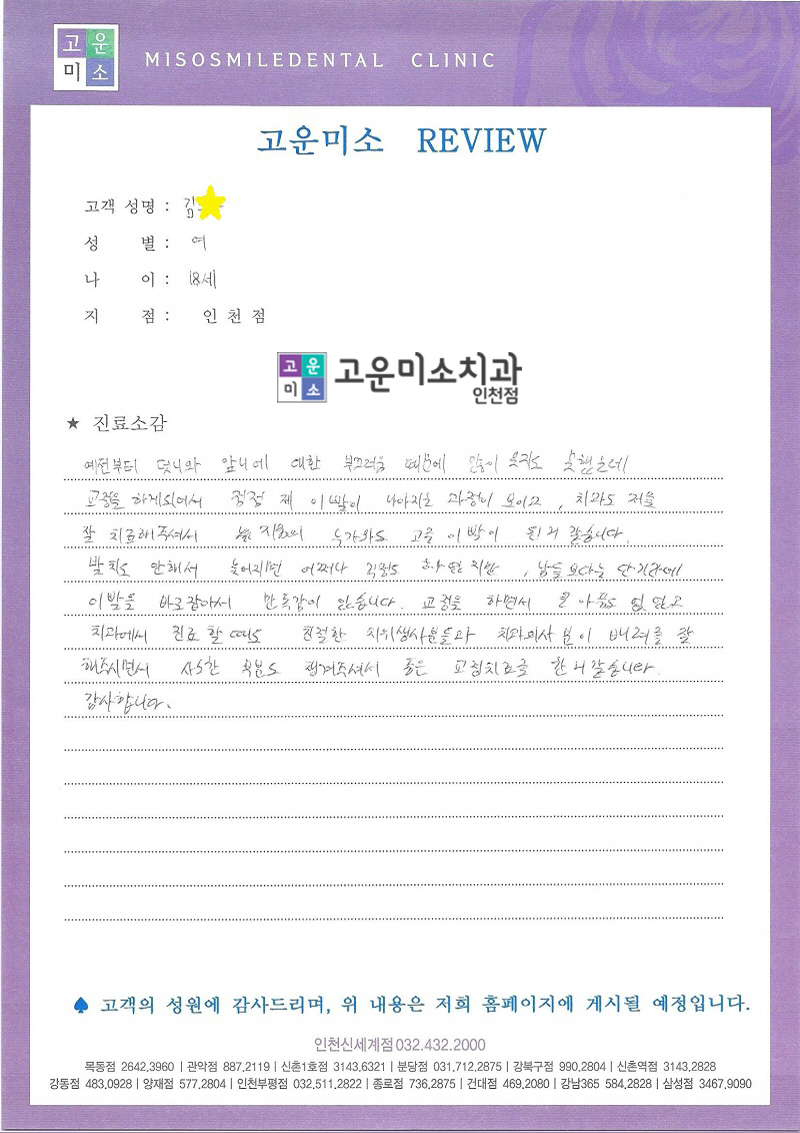 고운
미소
MISOSMILEDENTAL CLINIC
고운미소 REVIEW
고객 성명 : 김
성 별 : 여
나 이 : 18세
지 점 : 인천점
고운
미소
고운미소치과
인천점
★ 진료소감
예전부터 덧니와 앞니에 대한 부끄러움 때문에 웃지도 못했는데
교정을 하게되어서 점점 제 이빨이 나아지는 과정이 보이고, 치과도 저를
잘 치료해주셔서 지금의 누가봐도 고른 이빨이 된거 같습니다.
발치도 안해서 늦어지면 어쩌나 걱정도 했지만, 남들보다는 단기간에
이빨을 바로잡아서 만족감이 있습니다. 교정을 하면서 큰 아픔도 없었고
치과에서 진료 할 때도 친절한 치위생사분들과 치과의사 분이 배려를 잘
해주시면서 사소한 부분도 챙겨주셔서 좋은 교정치료를 한거 같습니다.
감사합니다.
♠ 고객의 성원에 감사드리며, 위 내용은 저희 홈페이지에 게시될 예정입니다.
인천신세계점 032.432.2000
목동점 2642,3960 | 관악점 887,2119 | 신촌1호점 3143,6321 | 분당점 031,712,2875 | 강북구점 990,2804 | 신촌역점 3143,2828
강동점 483,0928 | 양재점 577,2804 | 인천부평점 032,511,2822 | 종로점 736,2875 | 건대점 469,2080 | 강남365 584,2828 | 삼성점 3467,9090